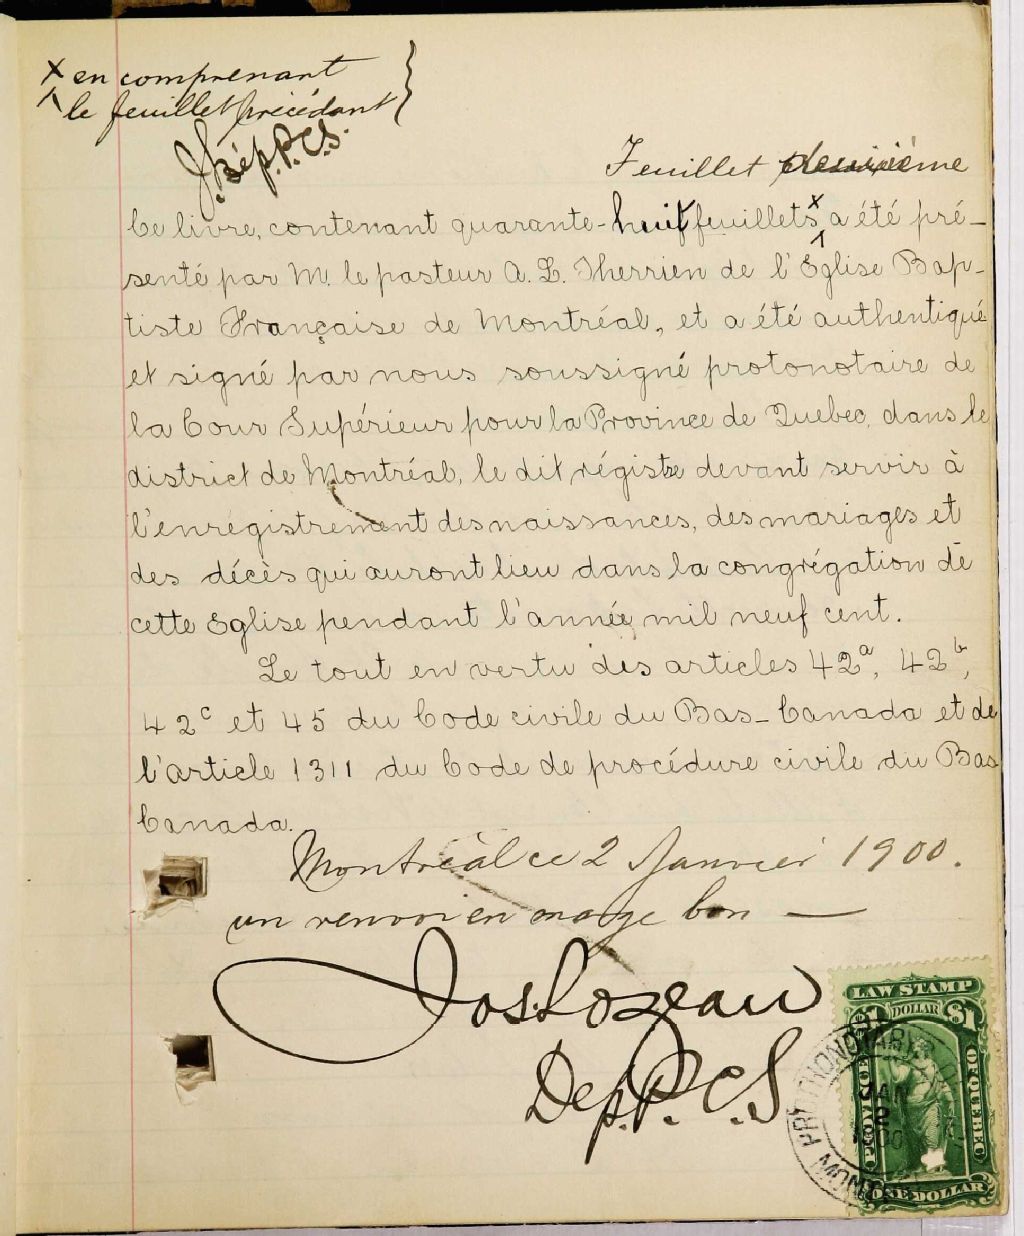 x en comprenant
le feuillet précédant
J.L. Dép. P.C.S.
Feuillet deuxième
Ce livre, contenant quarante-huit feuillets x a été pré-
senté par M. le pasteur A. L. Therrien de l'Église Bap-
tiste Française de Montréal, et a été authentiqué
et signé par nous soussigné protonotaire de
la Cour Supérieur pour la Province de Quebec, dans le
district de Montréal, le dit régistre devant servir à
l'enrégistrement des naissances, des mariages et
des décès qui auront lieu dans la congrégation de
cette Eglise pendant l'année mil neuf cent.
Le tout en vertu des articles 42a, 42b,
42c et 45 du Code civile du Bas-Canada et de
l'article 1311 du Code de procédure civile du Bas
Canada.
Montréal ce 2 Janvier 1900.
un renvoi en marge bon —
Jos. Lozeau
Dep. P. C. S
LAW STAMP
$1 DOLLAR $1
PROVINCE OF QUEBEC
ONE DOLLAR
PROTHONOTARY
JAN
2
1900